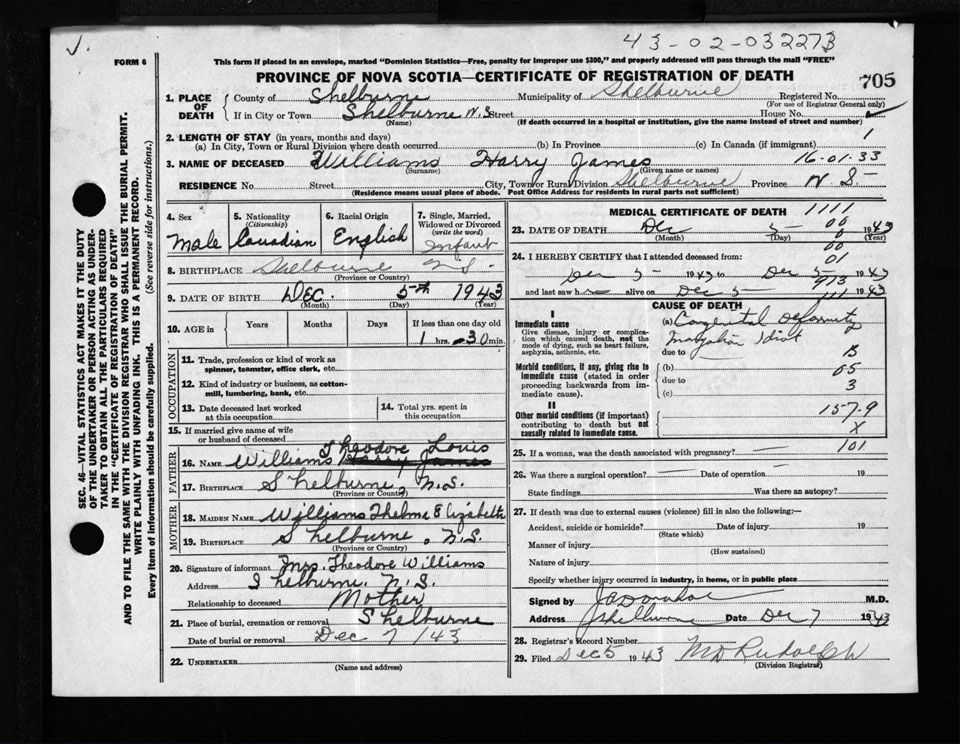 43-02-032273
FORM 6
This form if placed in an envelope, marked "Dominion Statistics—Free, penalty for improper use $300," and properly addressed will pass through the mail "FREE"
PROVINCE OF NOVA SCOTIA—CERTIFICATE OF REGISTRATION OF DEATH
705
1. PLACE OF DEATH
County of Shelburne Municipality of Shelburne Registered No.
(For use of Registrar General only)
If in City or Town Shelburne N.S. Street House No.
(Name) (If death occurred in a hospital or institution, give the name instead of street and number)
2. LENGTH OF STAY (in years, months and days) 1
(a) In City, Town or Rural Division where death occurred (b) In Province (c) In Canada (if immigrant)
3. NAME OF DECEASED Williams Harry James 16-01-33
(Surname) (Given name or names)
RESIDENCE No. Street City, Town or Rural Division Shelburne Province N.S.
(Residence means usual place of abode. Post Office Address for residents in rural parts not sufficient)
4. Sex
Male
5. Nationality
(Citizenship)
Canadian
6. Racial Origin
English
7. Single, Married, Widowed or Divorced
(write the word)
Infant
8. BIRTHPLACE Shelburne N.S.
(Province or Country)
9. DATE OF BIRTH Dec. 5th 1943
(Month) (Day) (Year)
10. AGE in
Years Months Days If less than one day old
1 hrs. 30 min.
OCCUPATION
11. Trade, profession or kind of work as
spinner, teamster, office clerk, etc.
12. Kind of industry or business, as cotton-
mill, lumbering, bank, etc.
13. Date deceased last worked
at this occupation
14. Total yrs. spent in
this occupation
15. If married give name of wife
or husband of deceased
FATHER
Theodore Louis
16. NAME Williams Harry James
17. BIRTHPLACE Shelburne, N.S.
(Province or Country)
MOTHER
18. MAIDEN NAME Williams Thelma Elizabeth
19. BIRTHPLACE Shelburne, N.S.
(Province or Country)
20. Signature of informant Mrs. Theodore Williams
Address Shelburne. N.S.
Relationship to deceased Mother
21. Place of burial, cremation or removal Shelburne
Date of burial or removal Dec 7 /43
22. UNDERTAKER
(Name and address)
MEDICAL CERTIFICATE OF DEATH 1111
00
23. DATE OF DEATH Dec 5 1943
6
(Month) (Day) (Year)
00
24. I HEREBY CERTIFY that I attended deceased from: 01
Dec 5 1943 to Dec 5 1943
913
and last saw h alive on Dec 5 1943
111
CAUSE OF DEATH
I
Immediate cause
Give disease, injury or complica-
tion which caused death, not the
mode of dying, such as heart failure,
asphyxia, asthenia, etc.
(a) Congenital Deformity
Mongolian Idiot
due to B
Morbid conditions, if any, giving rise to
immediate cause (stated in order
proceeding backwards from im-
mediate cause).
(b) 05
due to 3
(c)
II
Other morbid conditions (if important)
contributing to death but not
causally related to immediate cause.
157.9
X
25. If a woman, was the death associated with pregnancy? 101
26. Was there a surgical operation? Date of operation 19
State findings Was there an autopsy?
27. If death was due to external causes (violence) fill in also the following:—
Accident, suicide or homicide? Date of injury 19
(State which)
Manner of injury
(How sustained)
Nature of injury
Specify whether injury occurred in industry, in home, or in public place
Signed by M.D.
Address Shelburne Date Dec 7 1943
28. Registrar's Record Number
29. Filed Dec 5 1943 Rudolph
(Division Registrar)
SEC. 46—VITAL STATISTICS ACT MAKES IT THE DUTY
OF THE UNDERTAKER OR PERSON ACTING AS UNDER-
TAKER TO OBTAIN ALL THE PARTICULARS REQUIRED
IN THE "CERTIFICATE OF REGISTRATION OF DEATH"
AND TO FILE THE SAME WITH THE DIVISION REGISTRAR WHO SHALL ISSUE THE BURIAL PERMIT.
WRITE PLAINLY WITH UNFADING INK. THIS IS A PERMANENT RECORD.
Every item of information should be carefully supplied. (See reverse side for instructions.)